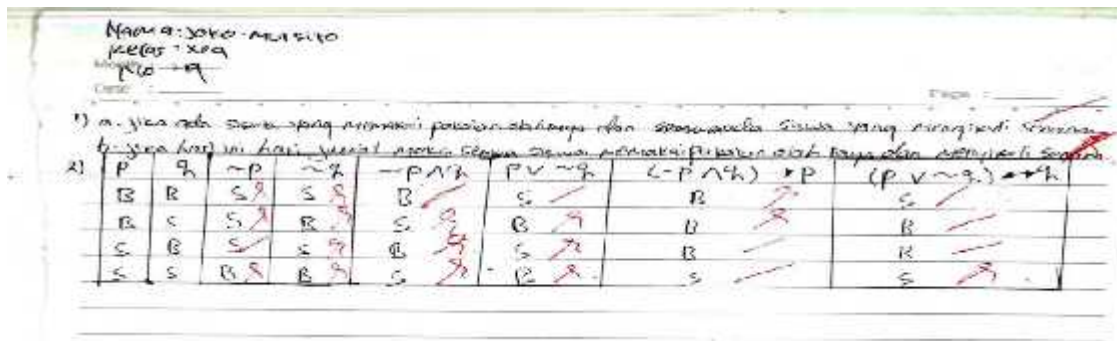 Nama: Joko
Kelas: X
No → 9
Date :
Page :
1) a. Jika ada siswa yang memakai pakaian olahraga dan siswa yang mengikuti
b. Jika hari ini hari maka semua siswa memakai pakaian olah raga dan mengikuti senam
2) P q ~P ~q ~P ∧ q P ∨ ~q (~P ∧ q) → P (P ∨ ~q) ↔ q
B B S S B S B S
B S S B S B B B
S B S S B S B B
S S B B S B S S